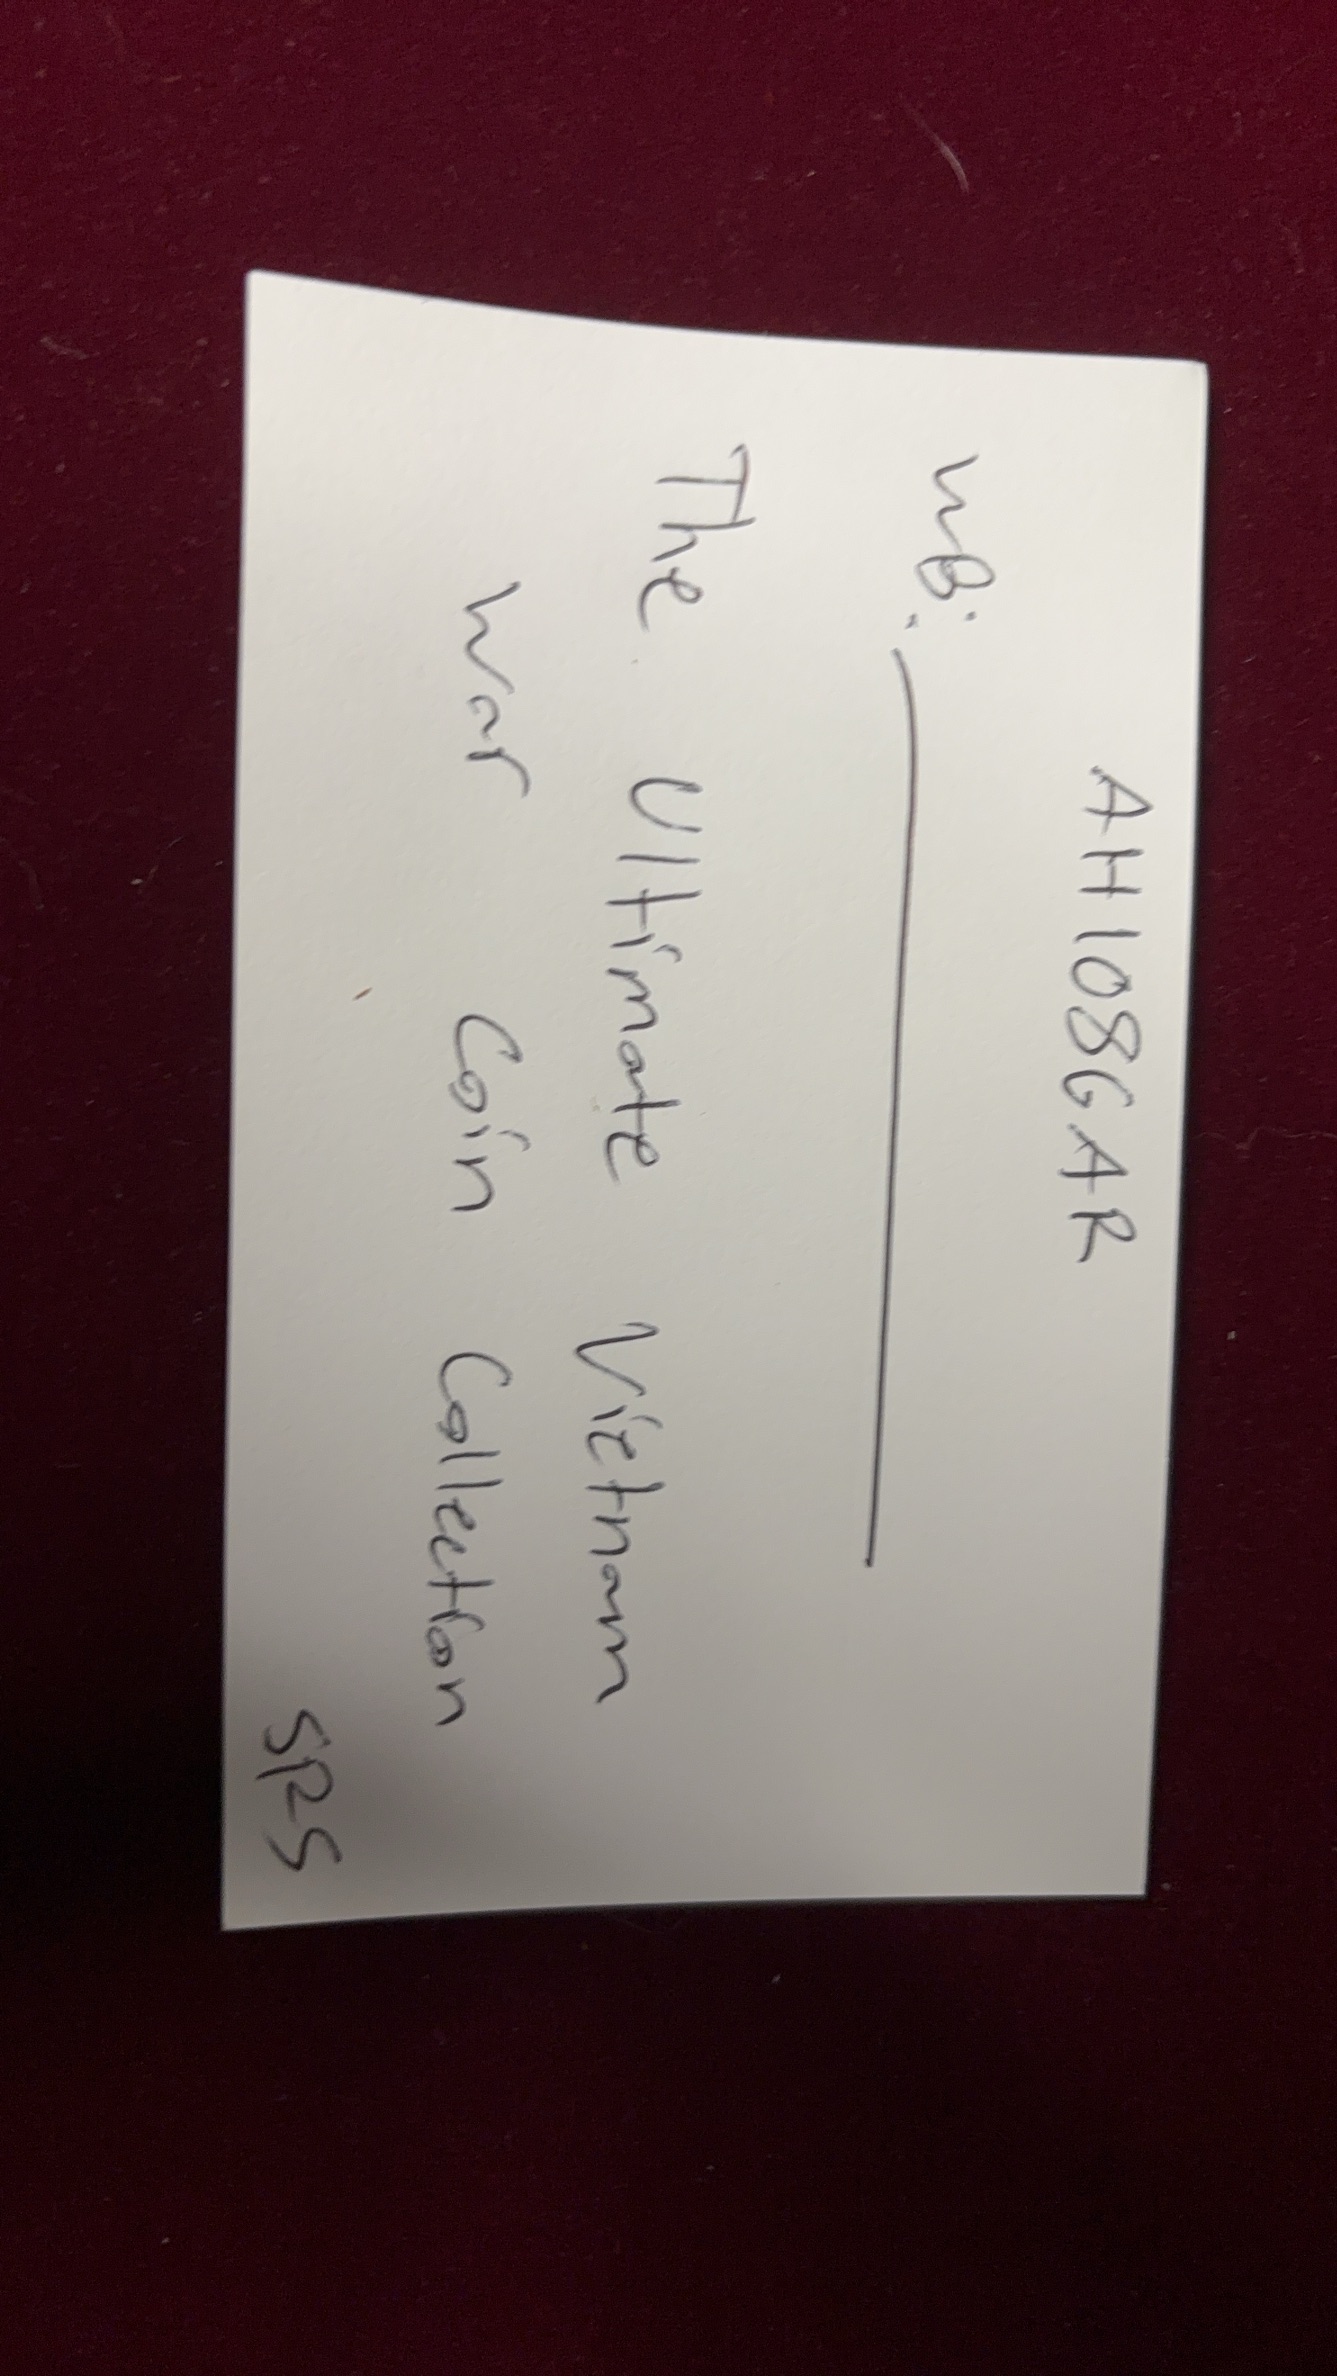 AH108GAR
WB:
The Ultimate Vietnam
War Coin Collection
SRS